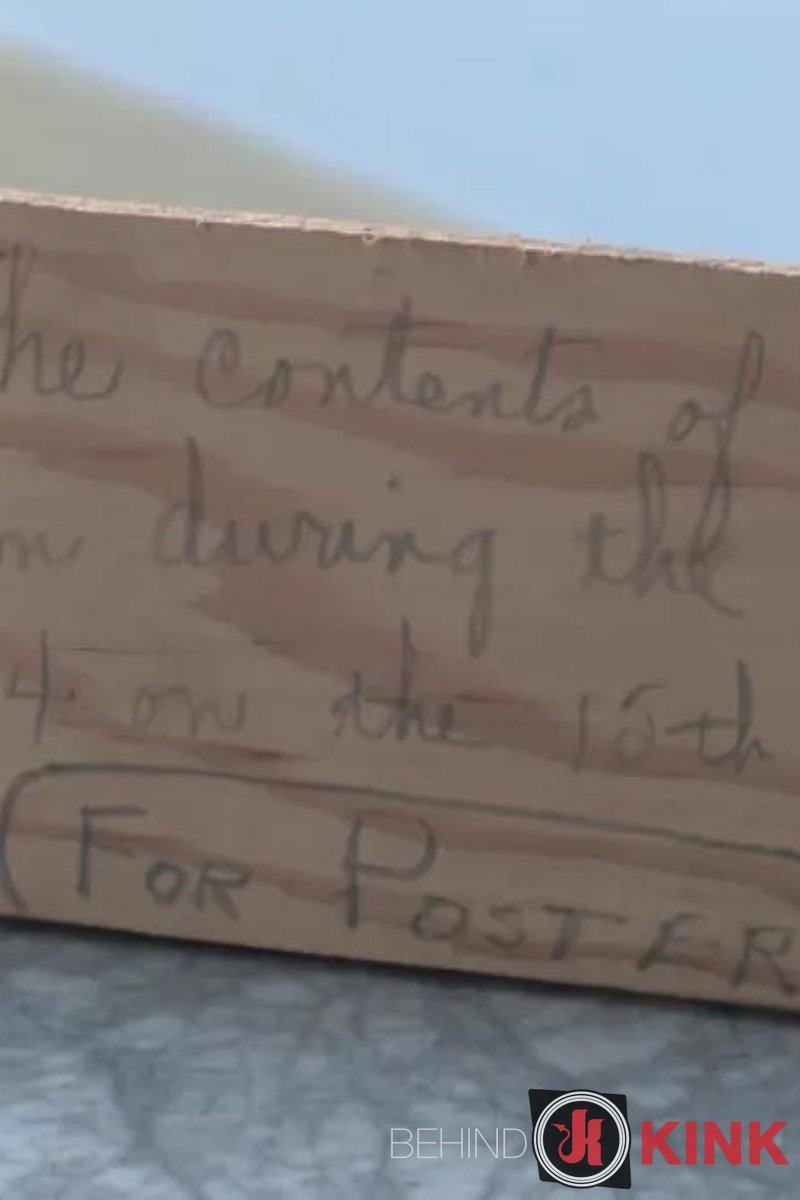 The contents of
during the
4 on the 15th
(FOR POSTER
BEHIND KINK